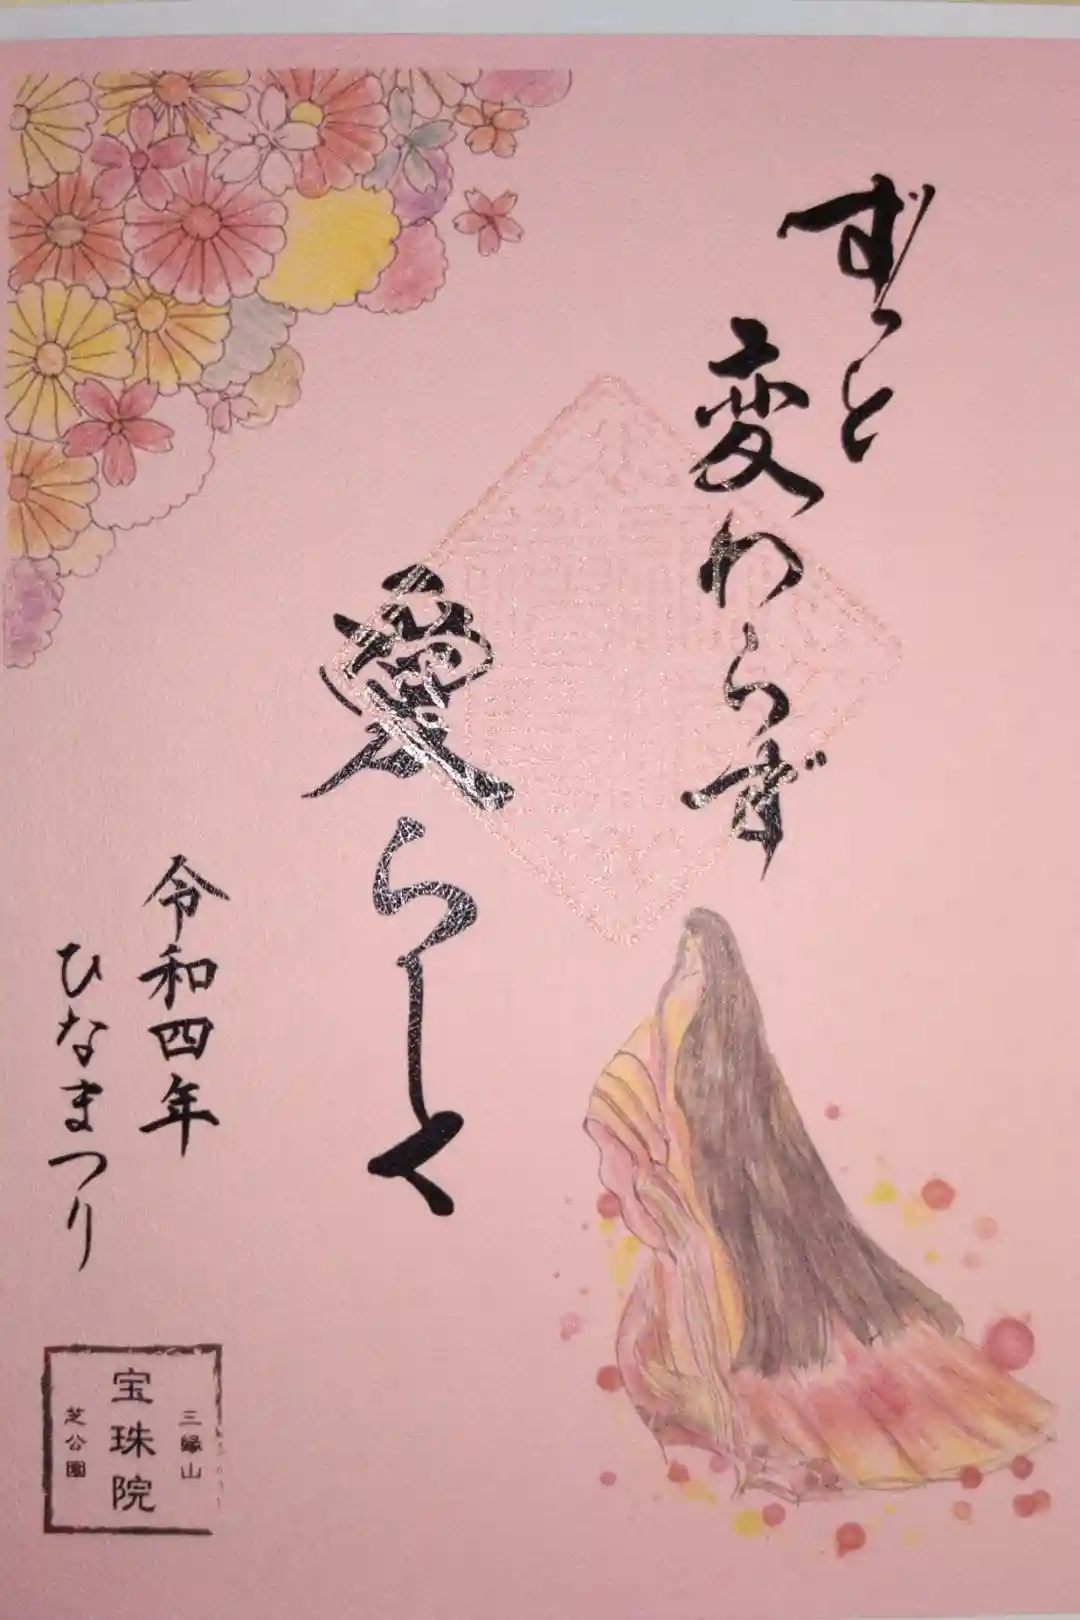 ずっと
変わらず
愛らしく
令和四年
ひなまつり
三縁山
宝珠院
芝公園